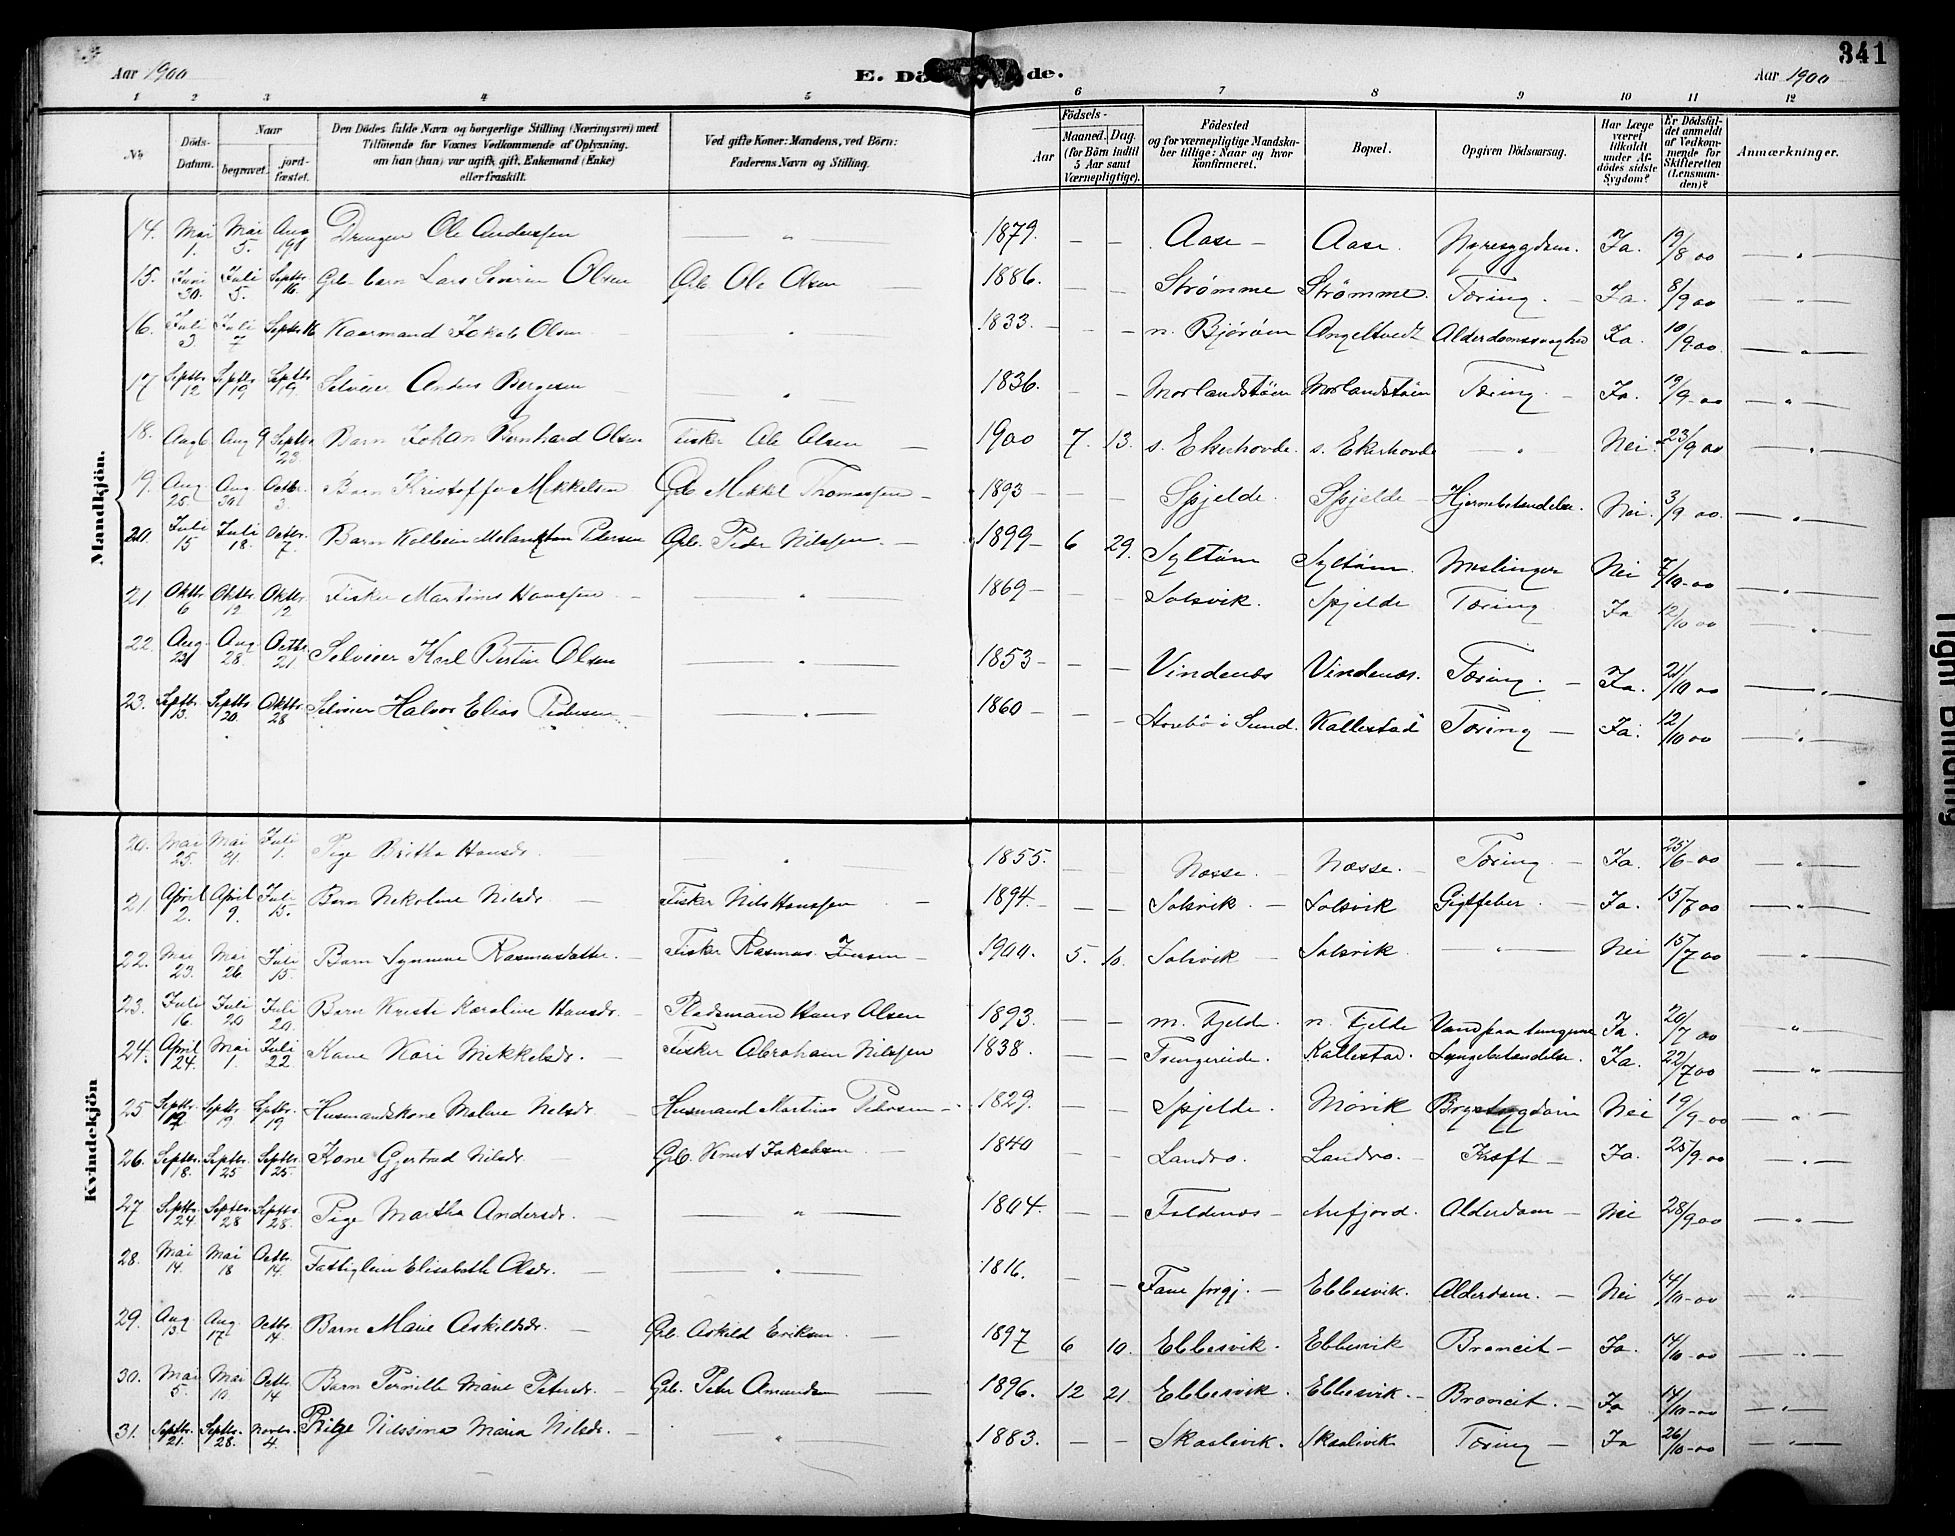 341
Aar 1900
E. Dö de.
Aar 1900
1 2 3 4 5 6 7 8 9 10 11 12
No
Döds-Datum.
Naar
begravet.
jord-fæstet.
Den Dödes fulde Navn og borgerlige Stilling (Næringsvei) med
Tilföiende for Voxnes Vedkommende af Oplysning,
om han (hun) var ugift, gift, Enkemand (Enke)
eller fraskilt.
Ved gifte Koner: Mandens, ved Börn:
Faderens Navn og Stilling.
Födsels-
Aar
Maaned. Dag.
(for Börn indtil
5 Aar samt
Værnepligtige).
Födested
og for værnepligtige Mandska-
ber tillige: Naar og hvor
konfirmeret.
Bopæl.
Opgiven Dödsaarsag.
Har Læge
været
tilkaldt
under Af-
dödes sidste
Sygdom?
Er Dödsfal-
det anmeldt
af Vedkom-
mende for
Skifteretten
(Lensman-
den)?
Anmærkninger.
Mandkjön.
14. Mai 1. Mai 5. Aug 19 Drengen Ole Anderssen — " — 1879. — — Aase — Aase. Nyresygdom. Ja. 19/8 00 — " —
15. Juni 30. Juli 5. Septbr 16. Gb. barn Lars Severin Olsen Gb. Ole Olsen — 1886. — — Strømme Strømme. Tæring. — Ja. 8/9 00 — " —
16. Juli 3. Juli 7 Septbr 16 Kaarmand Jakob Olsen " — 1833. — — n. Bjørøen Angeltvedt Alderdomssvaghed Ja. 10/9 00. — " —
17 Septbr 12 Septbr 19 Septbr 19. Selveier Anders Børgesen — " — 1836. — — Morlandstøen Morlandstøen Tæring. — Ja. 19/9 00 — " —
18. Aug 6 Aug 9 Septbr 23. Barn Johan Bernhard Olsen Fisker Ole Olsen — 1900 7. 13. s. Ekerhovde. s. Ekerhovde — " Nei. 23/9 00 — " —
19. Aug 25. Aug 30 Octbr 3. Barn Kristoffer Mikkelsen Gb. Mikkel Thomassen — 1893 — — — Spjelde. Spjelde — Hjernebetændelse. Nei. 3/9 00. — " —
20. Juli 15 Juli 18. Octbr. 7. Barn Kolbein Melankton Pedersen Gb. Peder Nilssen. — 1899 — 6 29. Syltøen Syltøen. Meslinger Nei 7/10-00 — " —
21 Oktbr 6 Oktbr 12 Oktbr 12 Fisker Martinus Hanssen — — " — 1869 — — — Solsvik. Spjelde Tæring Ja 12/10 00 — " —
22. Aug. 23 Aug. 28. Octbr. 21 Selveier Karl Bertin Olsen — " — 1853 — — — Vindenes Vindenes. Tæring. — Ja. 21/10 00 — " —
23. Septbr 13. Septbr 20. Oktbr 28 Selveier Halvor Elias Pedersen — " — 1860 — — — Storebø i Sund. Kallestad Tæring — Ja. 12/10 00 — " —
Kvindekjön
20. Mai 25. Mai 31. Juli 1. Pige Britha Hansdr. — " — 1855. — — Næsse. Næsse. — Tæring. — Ja. 25/6-00 — " —
21. April 2. April 9. Juli 15. Barn Nikoline Nilsdr. — Fisker Nils Hanssen — 1894. — — — Solsvik. — Solsvik Gigtfeber. — Ja. 15/7 00 — " —
22. Mai 23. Mai 26 Juli 15. Barn Synneve Rasmusdatter. — Fisker Rasmus Iversen — 1900. 5. 10. Solsvik — Solsvik. — " — Nei 15/7 00 "
23. Juli 16. Juli 20 Juli 20. Barn Kristi Karoline Hansdr. — Pladsmand Hans Olsen 1893. — — m. Fjelde. n. Fjelde Vand paa lungerne Ja. 20/7 00 "
24. April 24. Mai 1. Juli 22. Kone Kari Mikkelsdr. — Fisker Abraham Nilssen 1838. — — Trengereide. Kallestad. Lungebetændelse. Ja. 22/7 00 — " —
25 Septbr. 12 Septbr 19 Septbr. 19 Husmandskone Malene Nilsdr. — Husmand Martinus Pedersen — 1829. — — Spjelde. Morvik Brystsygdom Nei 19/9-00 — " —
26. Septbr. 18. Septbr. 25 Septbr. 25. Kone Gjertrud Nilsdr. — Gb. Knut Jakobsen — 1840 — — Landro. Landro. — Kræft — Ja. 25/9-00 — " —
27 Septbr. 24. Septbr. 28 Septbr. 28. Pige Martha Andersdr. — — " — 1804. — — Foldenes — Arefjord. Alderdom — Nei 28/9 00 — " —
28. Mai 14. Mai 18 Octbr. 14. Fattiglem Elisabeth Olsdr. — — " — 1816. — — Fane prgj. — Ebbesvik. Alderdom. — Nei 14/10-00 "
29. Aug 13. Aug. 17 Octbr. 14. Barn Marie Askildsdr. — Gb. Askild Eriksen. — 1897 6 10. Ebbesvik. Ebbesvik Broncit — Ja. 14/10-00 — " —
30. Mai 5. Mai 10 Octbr. 14 Barn Pernille Marie Petersdr. — Gb. Peter Amundsen — 1896. 12 21. Ebbesvik. Ebbesvik. — Broncit. — Ja 14/10-00 — " —
31. Septbr. 21. Septbr. 28. Novbr. 4. Pige Nilssina Maria Nilsdr. — — " — 1883. — — Skaalevik. Skaalevik Tæring — Ja 26/10-00 — " —